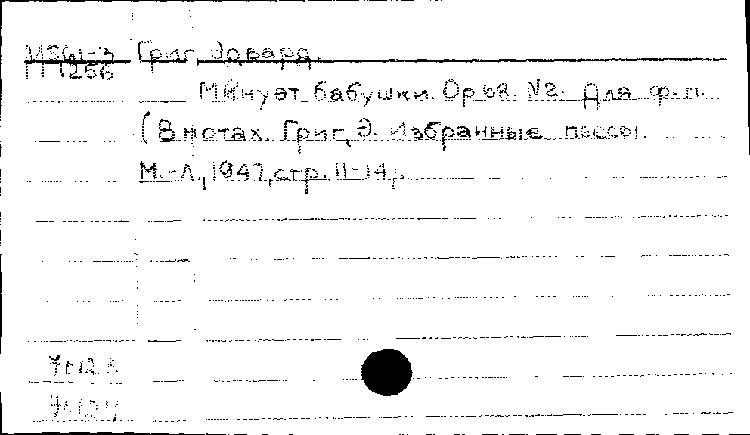 Григ, Эдвард.
М 1256
Менуэт бабушки. Op 68. N2. Для ф.-п.
(В нотах: Григ, Э. Избранные пьесы.
М.-Л., 1947, стр. 11-14.